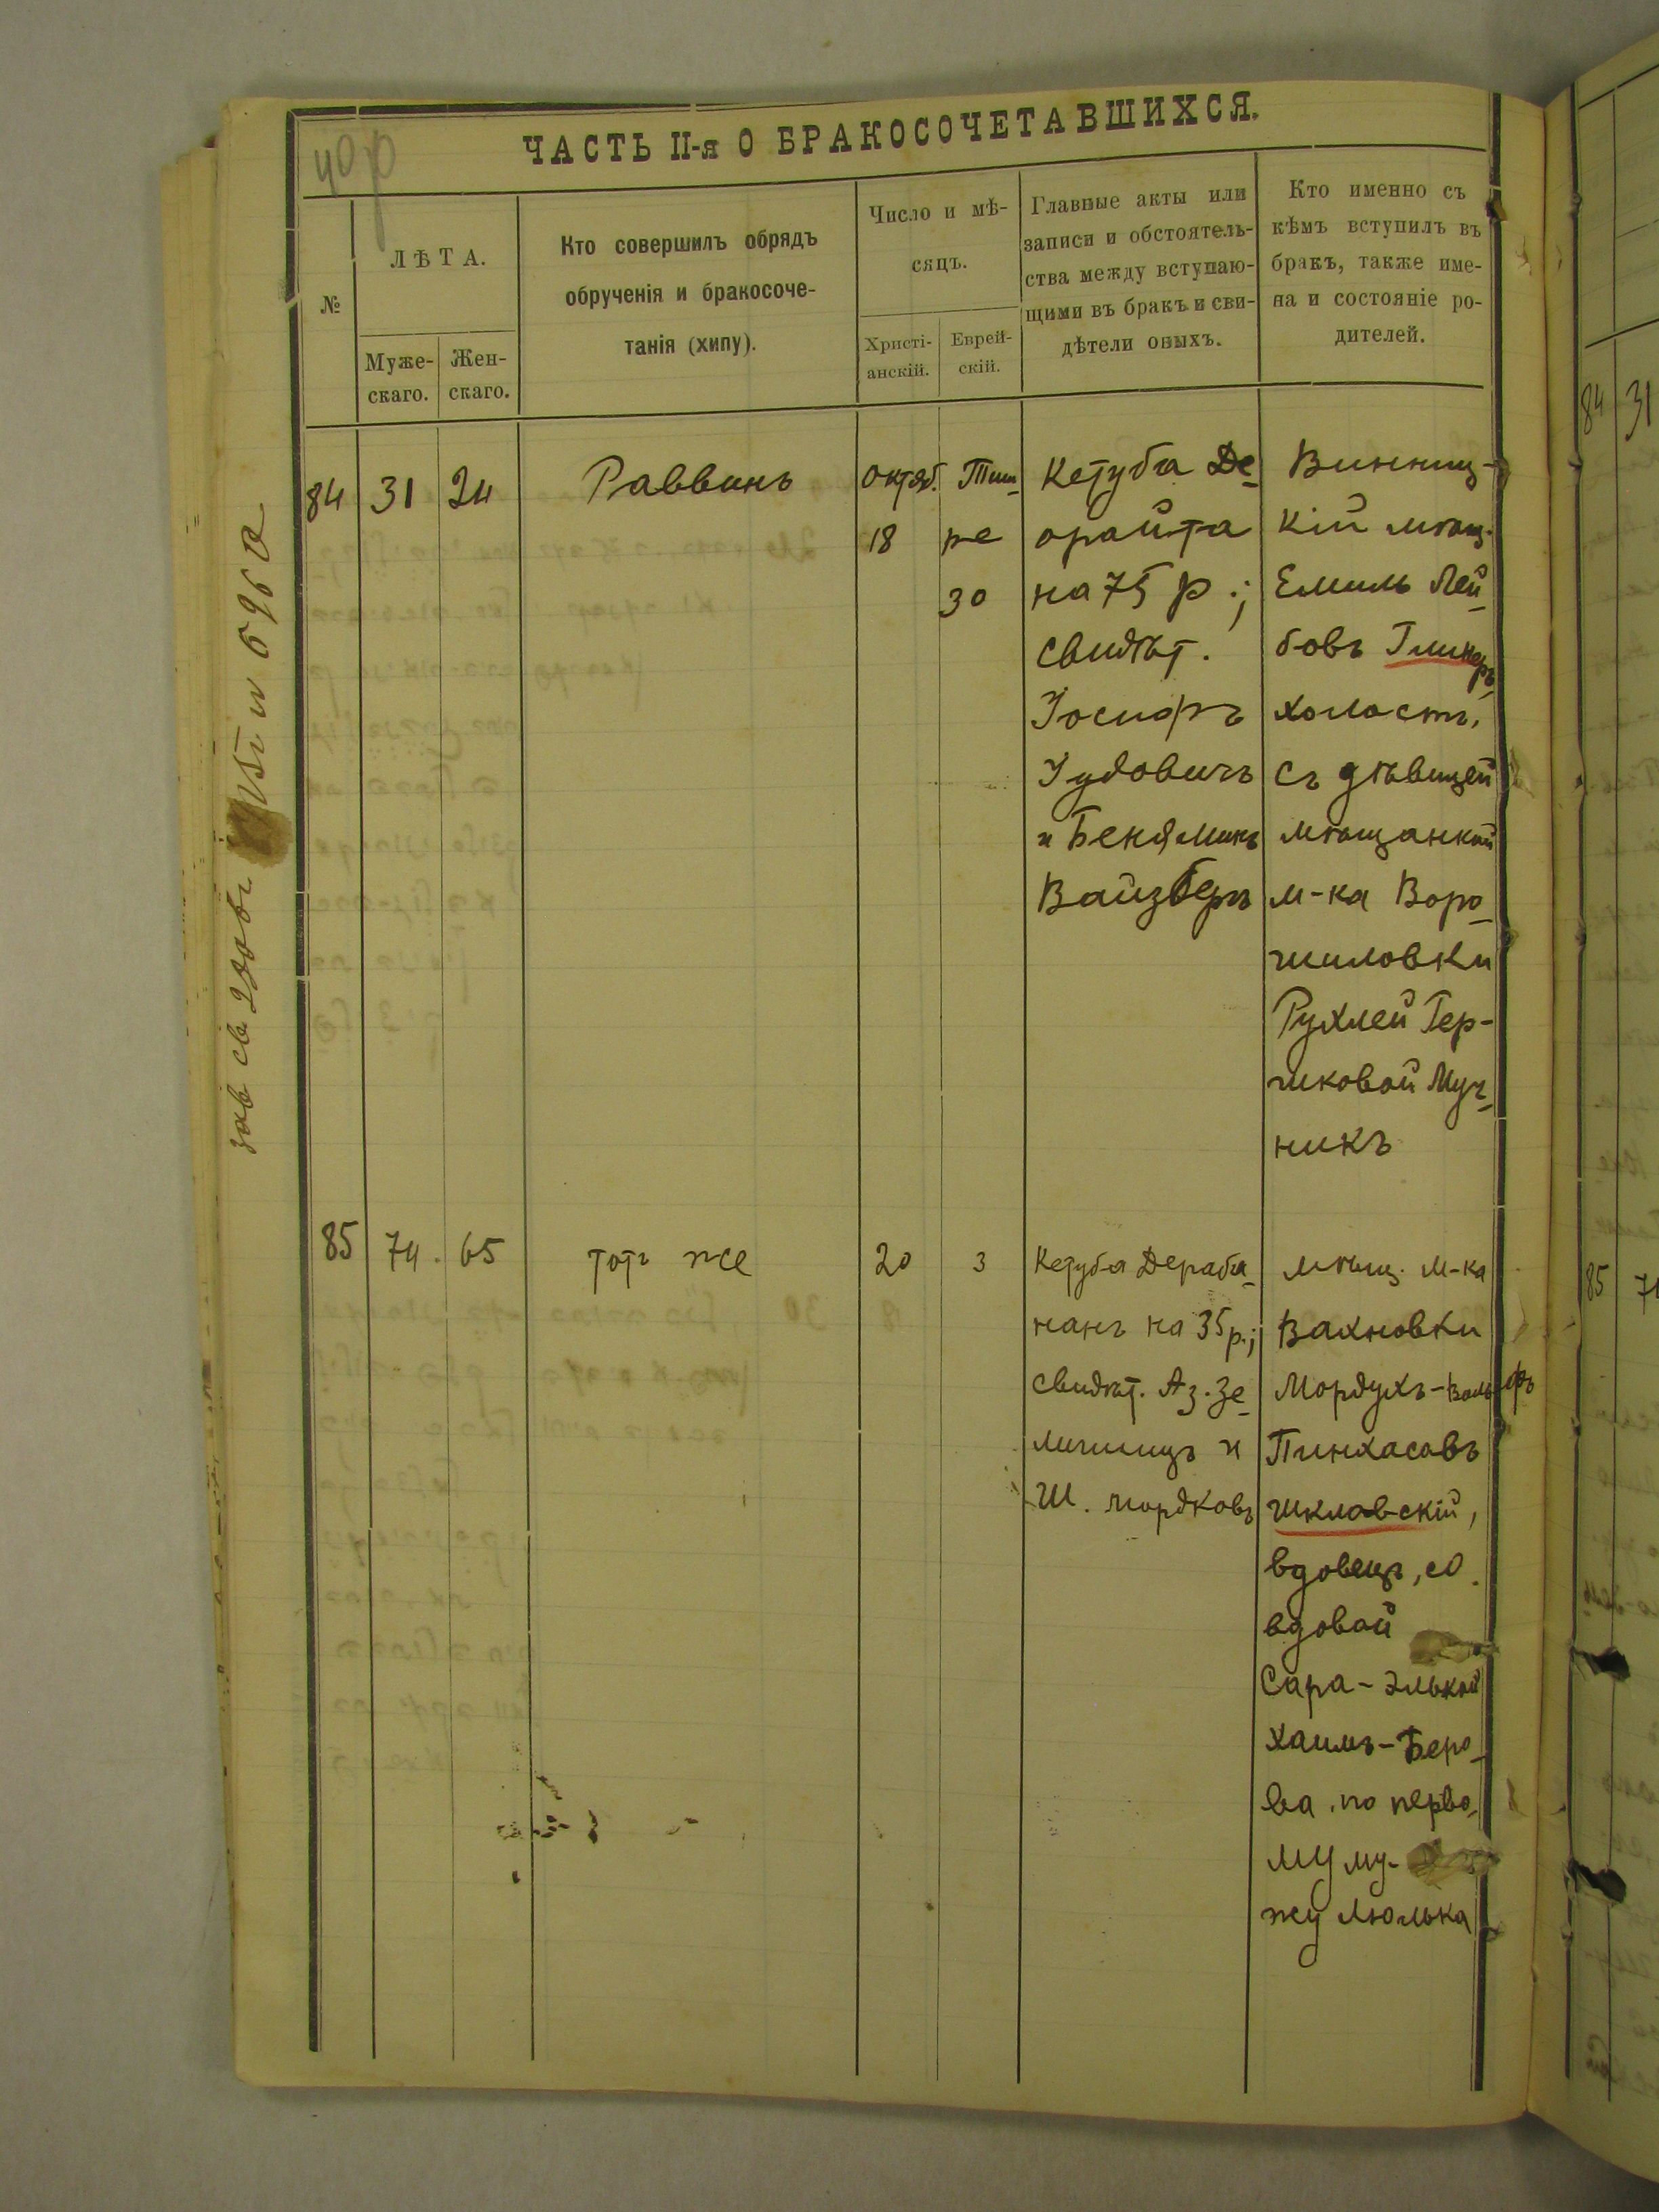 ЧАСТЬ II-я О БРАКОСОЧЕТАВШИХСЯ.
№
ЛѢТА.
Муже-
скаго.
Жен-
скаго.
Кто совершилъ обрядъ
обрученія и бракосоче-
танія (хипу).
Число и мѣ-
сяцъ.
Христі-
анскій.
Еврей-
скій.
Главные акты или
записи и обстоятель-
ства между вступаю-
щими въ бракъ и сви-
дѣтели оныхъ.
Кто именно съ
кѣмъ вступилъ въ
бракъ, также име-
на и состояніе ро-
дителей.
84
31
24
Раввинъ
Октяб.
18
Тиш-
ре
30
Кетуба Де-
орайта
на 75 р.;
свидѣт.
Іосифъ
Іудовичъ
и Беняминъ
Вайзберг
Винниц-
кій мѣщ.
Емиль Лей-
бовъ Глинеръ,
холостъ,
съ дѣвицей
мѣщанкой
м-ка Воро-
шиловки
Рухлей Гер-
шковой Муч-
никъ
85
74.
65
тотъ же
20
3
Кетуба Дераба-
нанъ на 35 р.;
свидѣт. Аз. Зе-
личинцъ и
Ш. Мордковъ
мѣщ. м-ка
Вахновки
Мордухъ-Вольфъ
Пинхасовъ
Шкловскій,
вдовецъ, со
вдовой
Сара-Элькой
Хаимъ-Беро-
ва, по перво-
му му-
жу Люлька
84 31
85